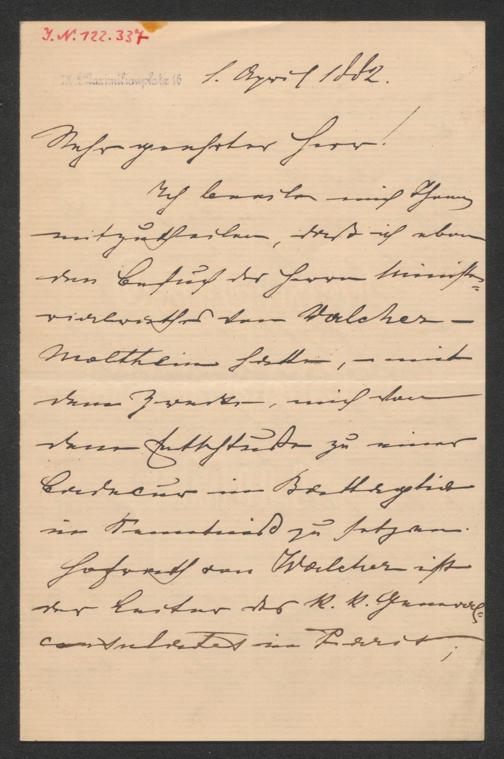 J.N. 122.337
IX. Maximilianplatz 16
1. April 1882.
Sehr geehrter Herr!
Ich beeile mich Ihnen
mitzutheilen, daß ich eben
den Besuch des Herrn Minist-
erialrathes von Walcher-
Molthein hatte, – mit
dem Zwecke, mich von
dem Entschluße zu einer
Badecur in Battaglia
in Kenntniß zu setzen.
Hofrath von Walcher ist
der Leiter des K. K. General-
consulates in Paris;